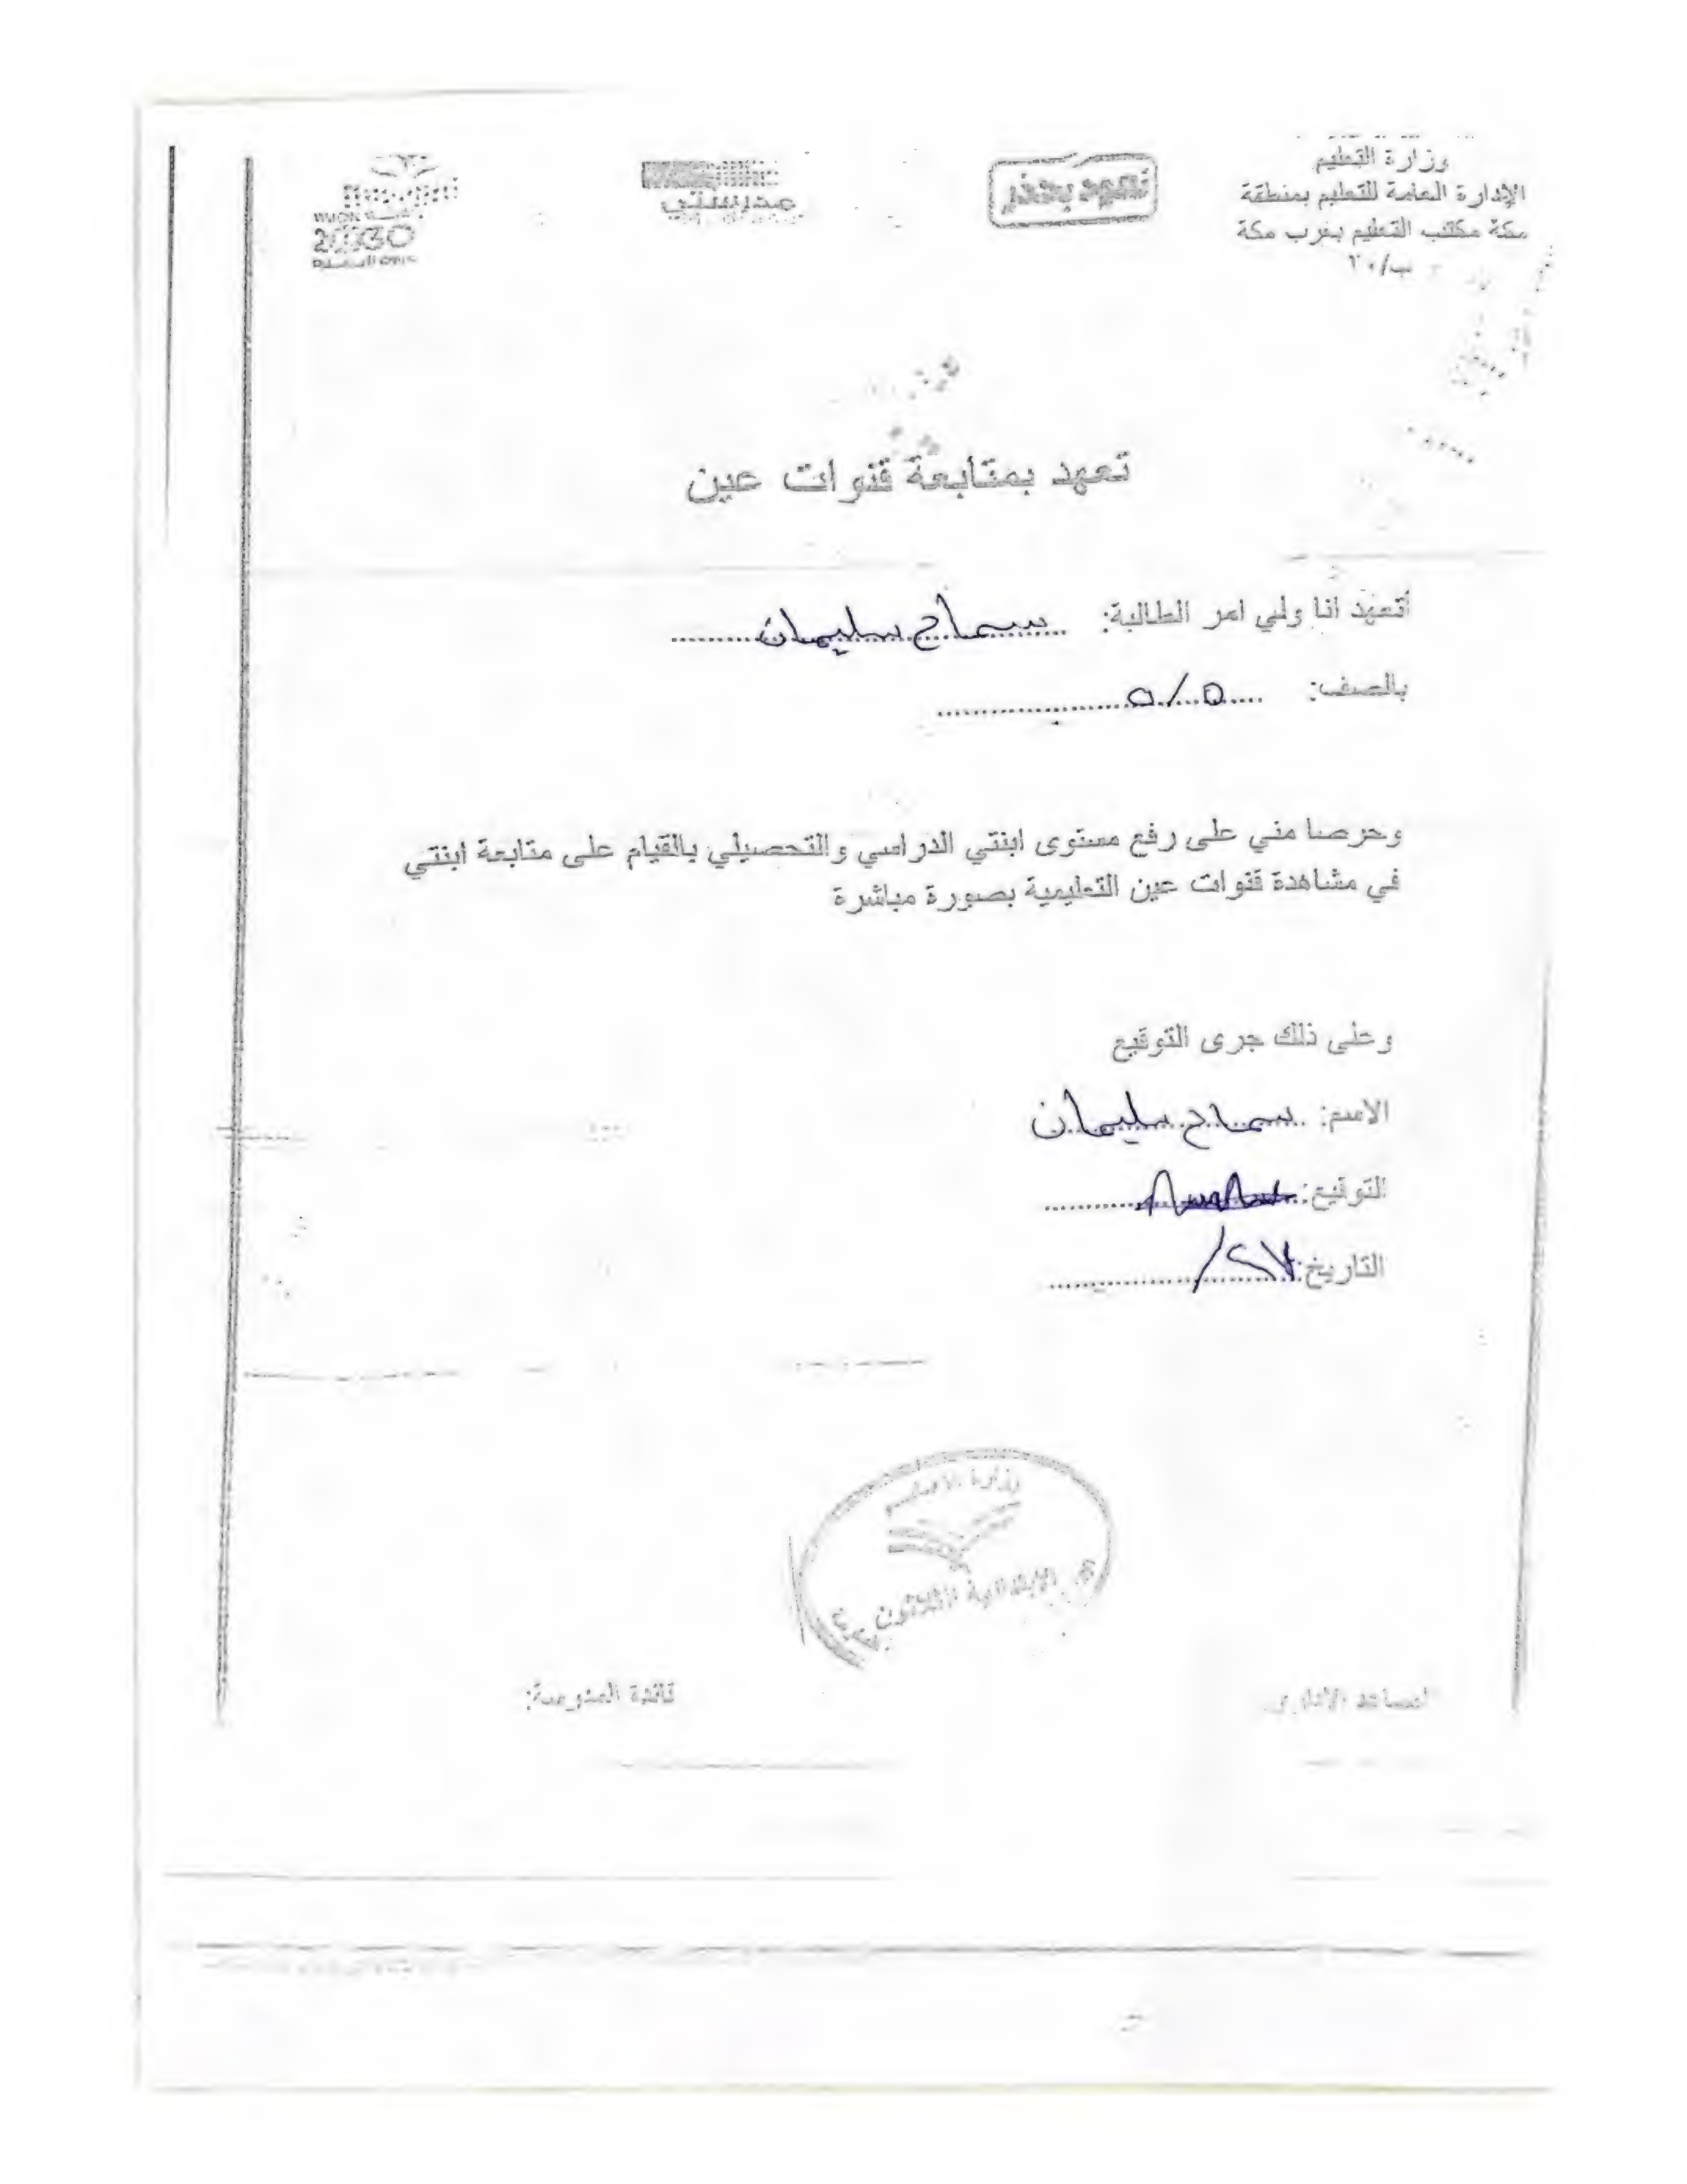 وزارة التعليم
الإدارة العامة للتعليم بمنطقة
مكة مكتب التعليم بغرب مكة
ب/٢٠
نعود بحذر
مدرستي
VISION
2030
تعهد بمتابعة قنوات عين
أتعهد انا ولي امر الطالبة: سماح سليمان
بالصف: ٥/٥
وحرصا مني على رفع مستوى ابنتي الدراسي والتحصيلي بالقيام على متابعة ابنتي
في مشاهدة قنوات عين التعليمية بصورة مباشرة
وعلى ذلك جرى التوقيع
الاسم: سماح سليمان
التوقيع:
التاريخ: ٢٧/
وزارة التعليم
الابتدائية الثلاثون
المساعد الإداري
قائدة المدرسة: